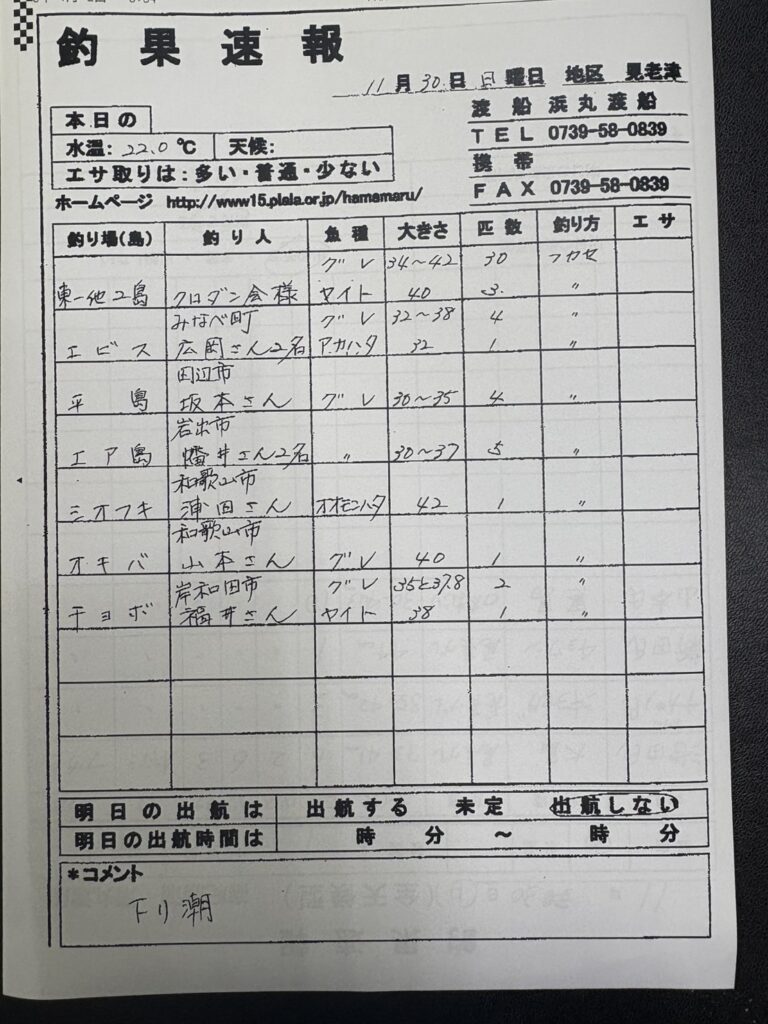 釣果速報
11月30日 日曜日 地区 見老津
渡船 浜丸渡船
本日の
TEL 0739-58-0839
水温: 22.0℃ 天候:
携帯
エサ取りは:多い・普通・少ない
FAX 0739-58-0839
ホームページ http://www15.plala.or.jp/hamamaru/
釣り場(島) 釣り人 魚種 大きさ 匹数 釣り方 エサ
グレ 34〜42 30 フカセ
東一他2島 クロダン会様 ヤイト 40 3 〃
みなべ町 グレ 32〜38 4 〃
エビス 広岡さん2名 アカハタ 32 1 〃
田辺市
平島 坂本さん グレ 30〜35 4 〃
岩出市
エア島 幡井さん2名 〃 30〜37 5 〃
和歌山市
シオフキ 浦田さん オオモンハタ 42 1 〃
和歌山市
オキバ 山本さん グレ 40 1 〃
岸和田市 グレ 35と37.8 2 〃
チョボ 福井さん ヤイト 38 1 〃
明日の出航は 出航する 未定 出航しない
明日の出航時間は 時 分 〜 時 分
*コメント
下り潮